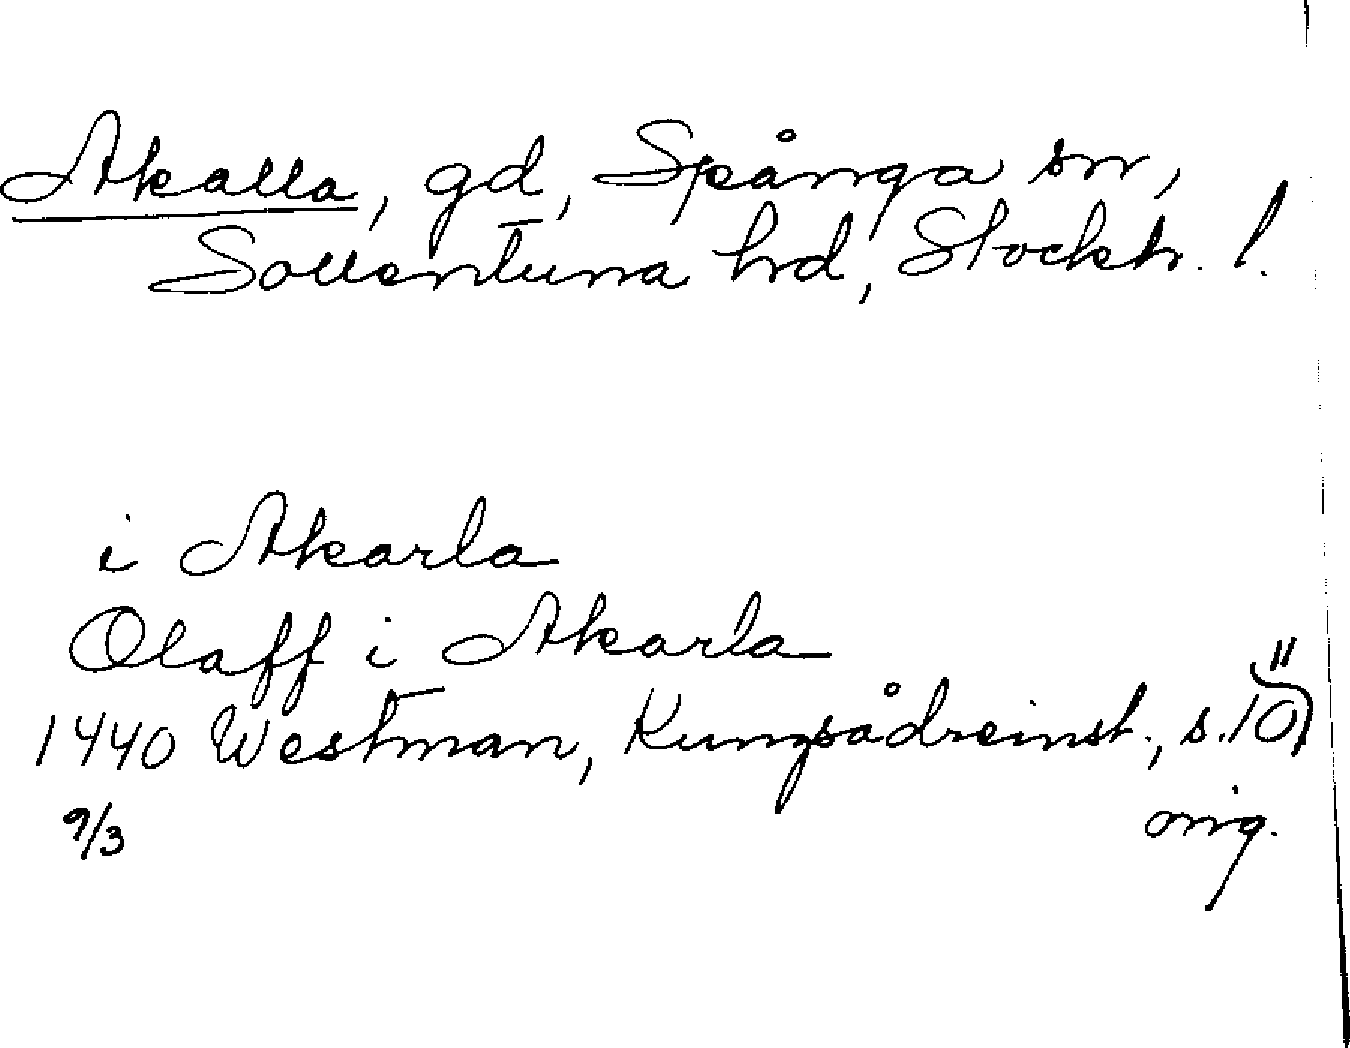 Akalla, gd, Spånga sn,
Sollentuna hrd, Stockh. l.
i Akarla
Olaff i Akarla
1440 Westman, Kungsådreinst., s. 10
9/3 orig.